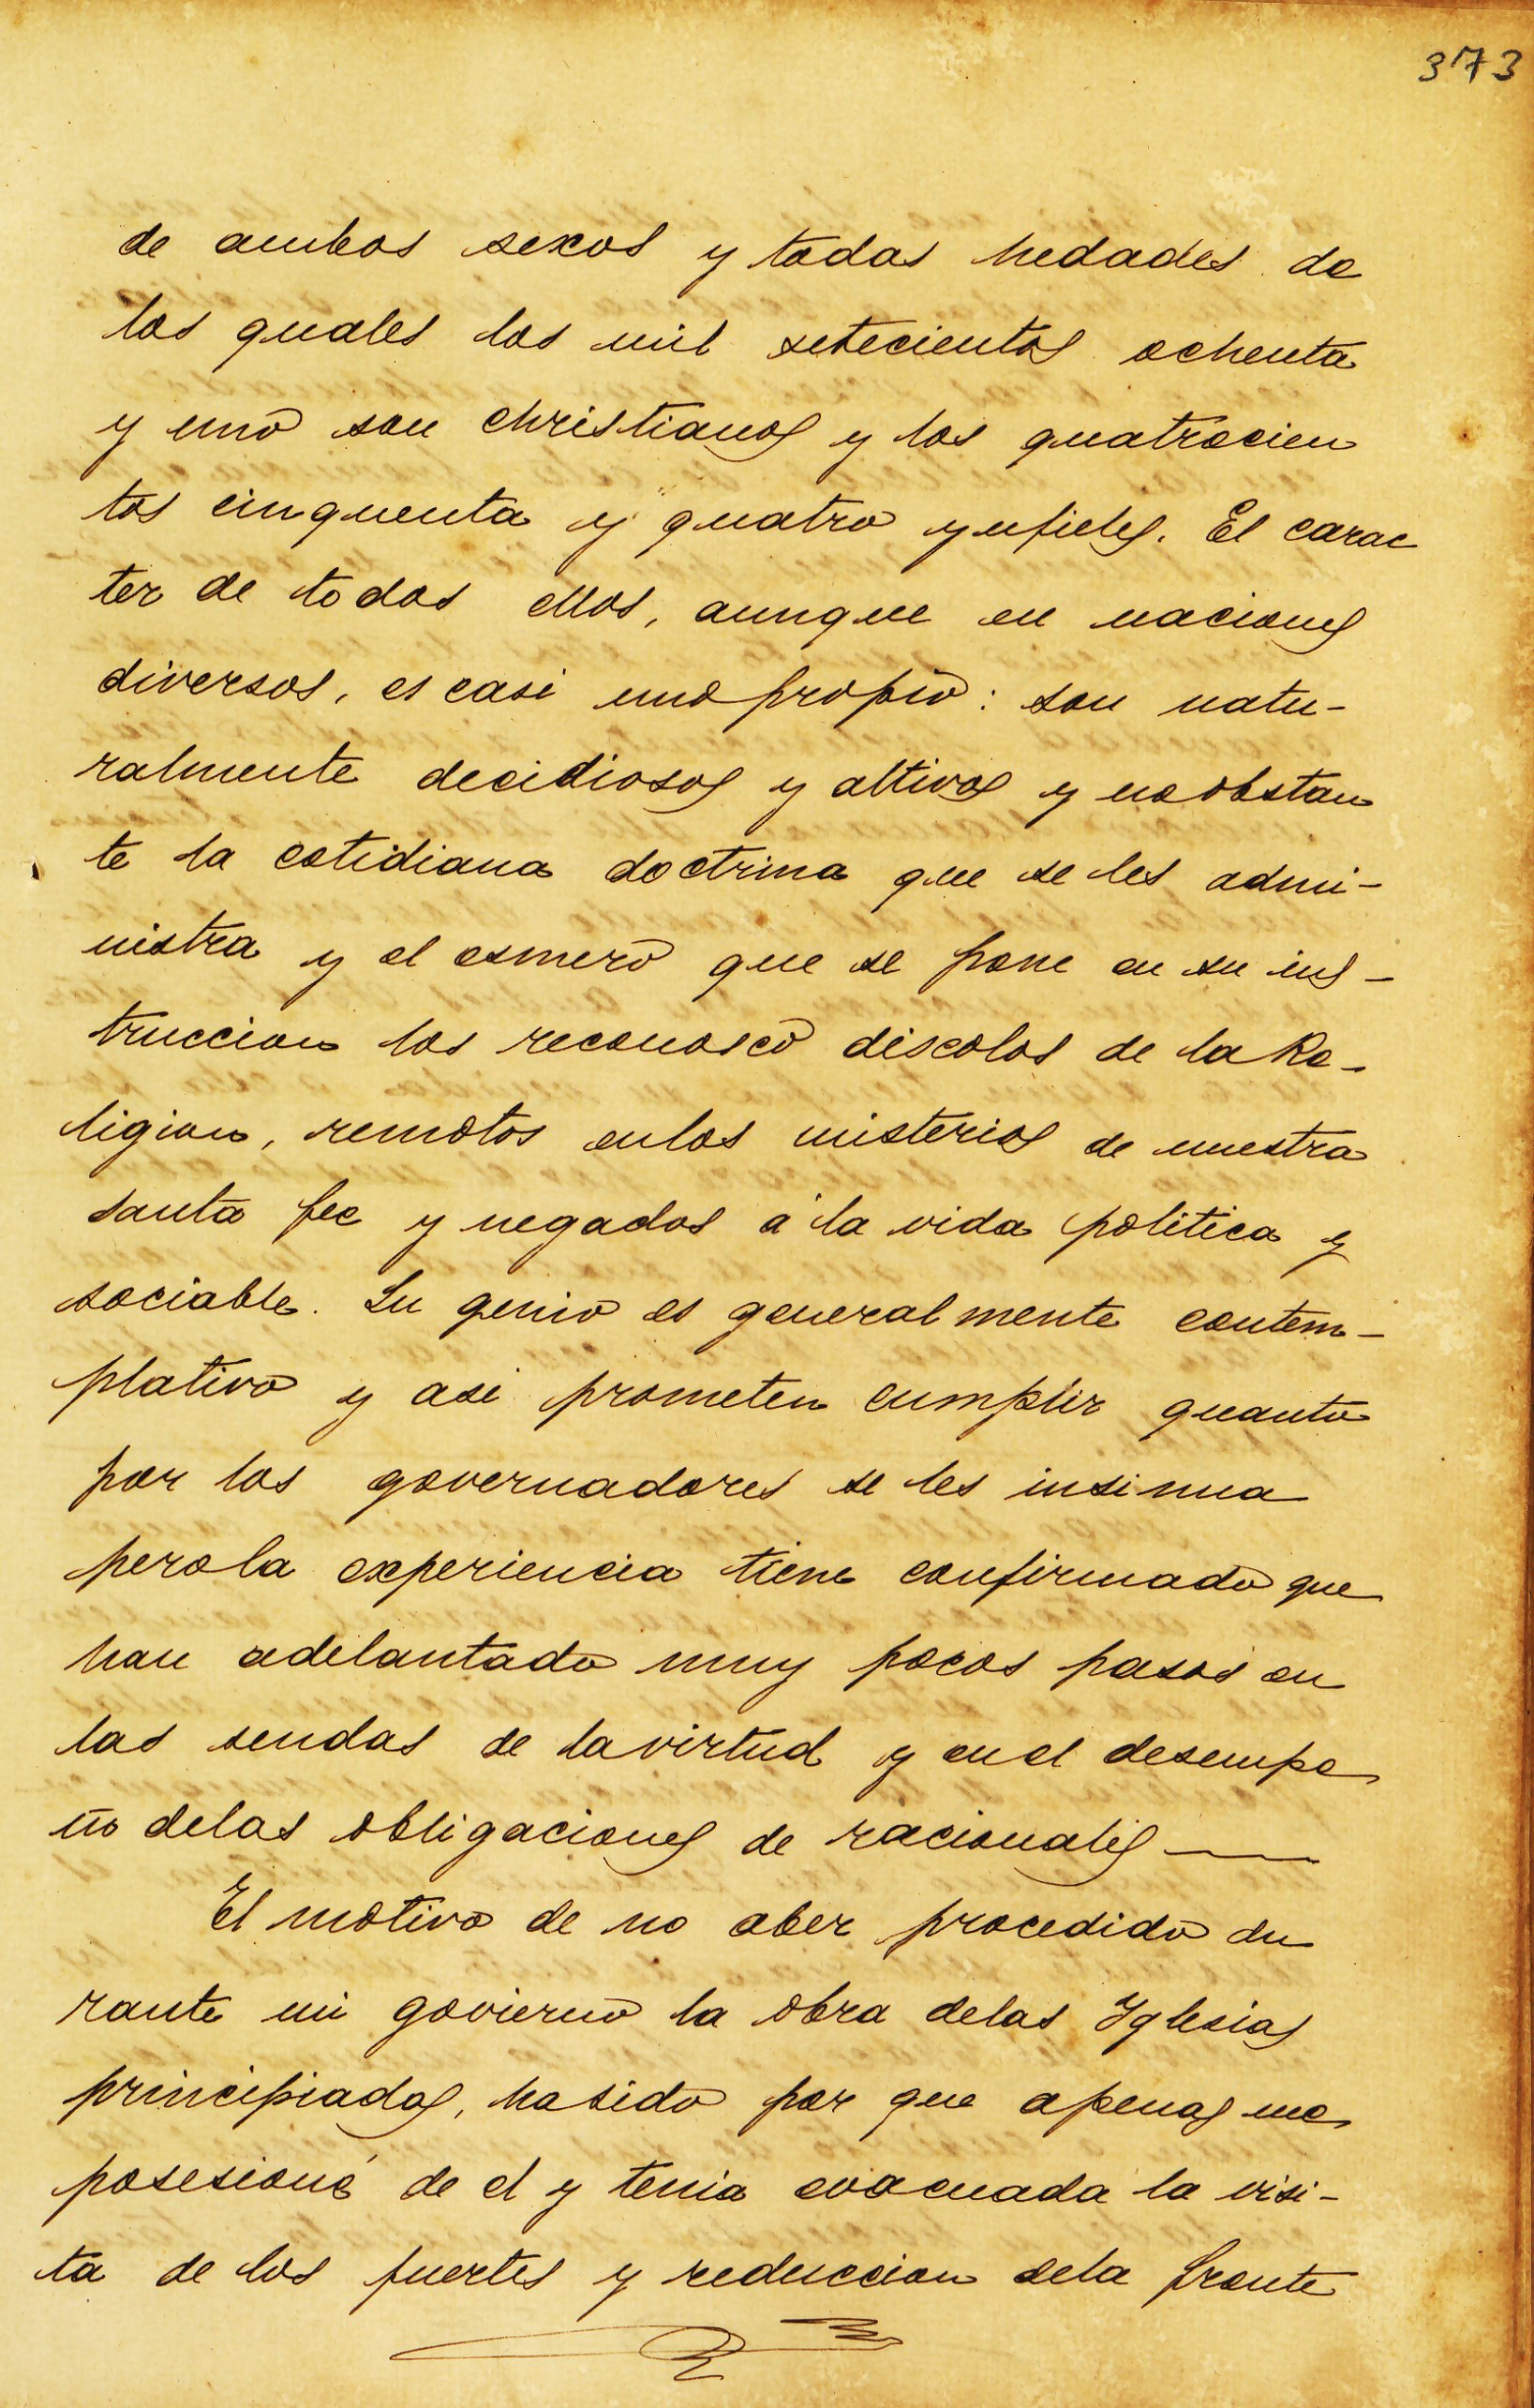 373
de ambos sexos y todas hedades de
los quales los mil setecientos ochenta
y uno son christianos y los quatrocien
tos cinquenta y quatro ynfieles. El carac
ter de todos ellos, aunque en naciones
diversos, es casi uno propio: son natu-
ralmente decidiosos y altivos y no obstan
te la cotidiana doctrina que se les admi-
nistra y el esmero que se pone en su ins-
truccion los reconosco discolos de la Re-
ligion, remotos en los misterios de nuestra
santa fee y negados á la vida politica y
sociable. Su genio es generalmente contem-
plativo y asi prometen cumplir quanto
por los governadores se les insinua
pero la experiencia tiene confirmado que
han adelantado muy pocos pasos en
las sendas de la virtud y en el desempe
ño de las obligaciones de racionales
El motivo de no aber procedido du
rante mi govierno la obra de las Yglesias
principiadas, ha sido por que apenas me
posesioné de el y tenia evacuada la visi-
ta de los fuertes y reduccion dela fronte